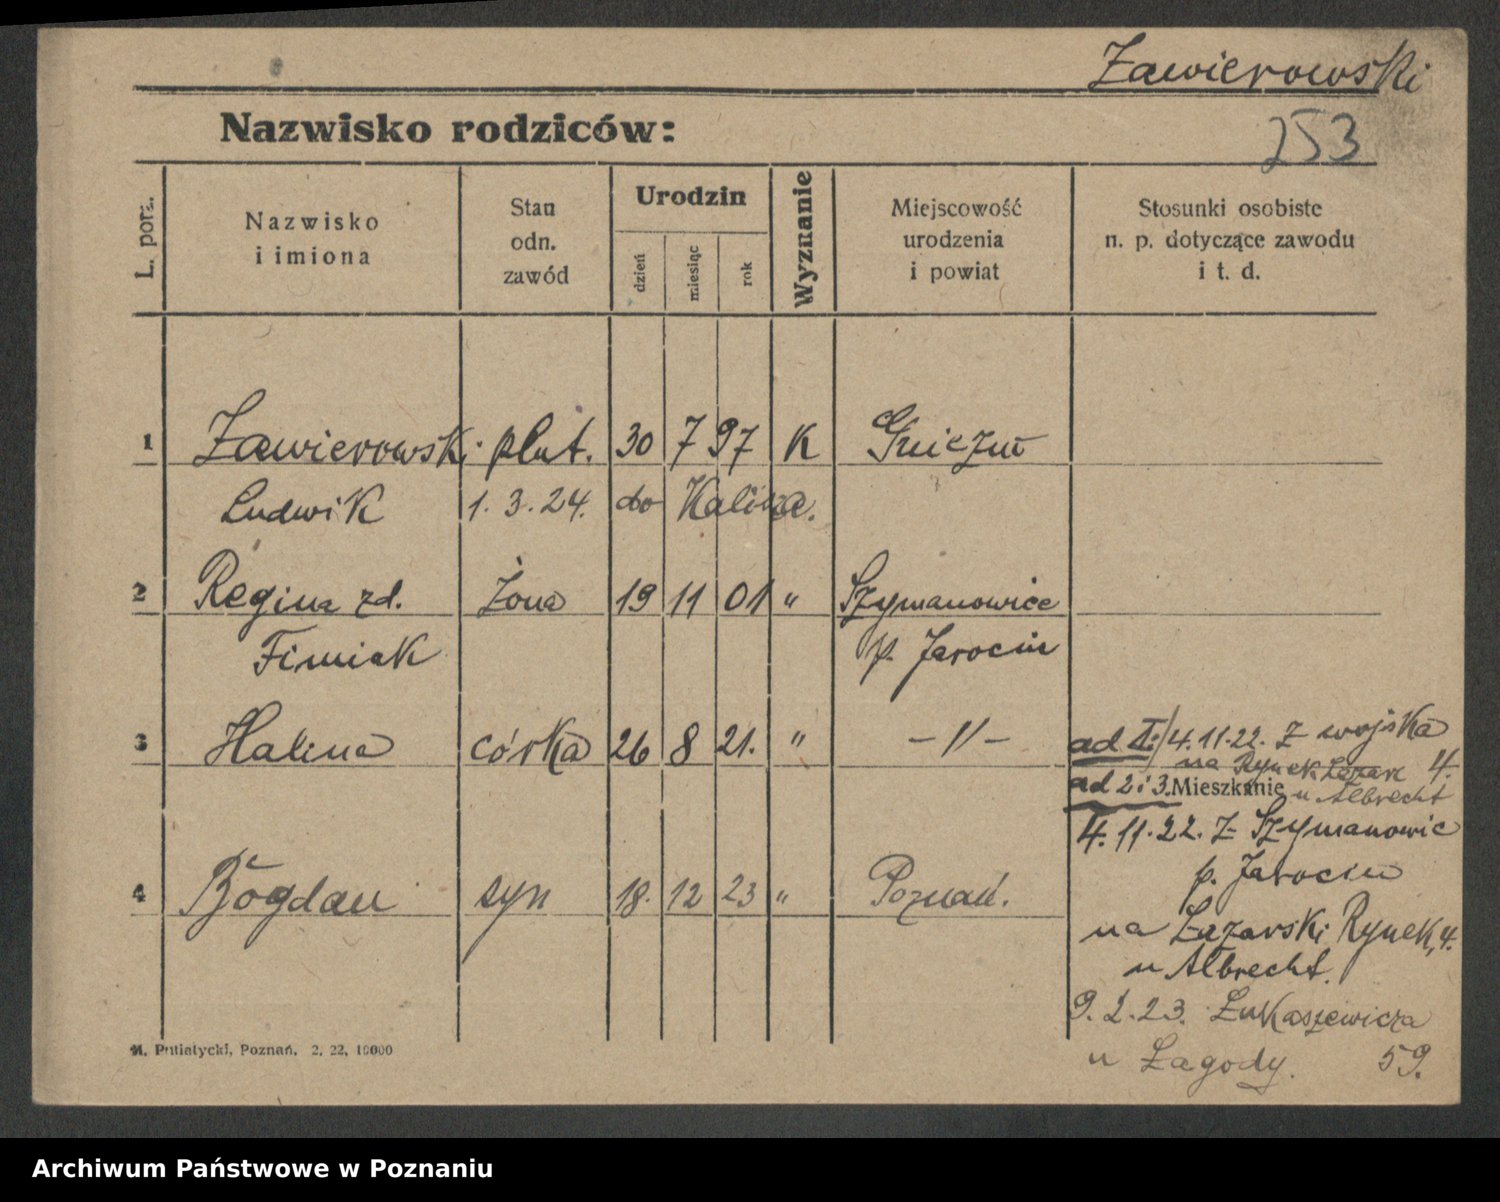 Zawierowski
253
Nazwisko rodziców:
L. porz.
Nazwisko
i imiona
Stan
odn.
zawód
Urodzin
dzień
miesiąc
rok
Wyznanie
Miejscowość
urodzenia
i powiat
Stosunki osobiste
n. p. dotyczące zawodu
i t. d.
1 Zawierowski plut. 30 7 97 K Gniezno
Ludwik 1. 3. 24. do Kalisza.
2 Regina zd. żona 19 11 01 " Szymanowice
Fimiak p. Jarocin
3 Halina córka 26 8 21. " -"-
ad I./ 4.11.22. z wojska
na Rynek Łazarz 4.
ad 2 i 3. Mieszkanie u Albrecht
4.11.22. z Szymanowic
p. Jarocin
4 Bogdan syn 18. 12 23 " Poznań.
na Łazarski Rynek, 4.
u Albrecht.
9.2.23. Łukaszewicza
u Łagody. 59.
M. Putiatycki, Poznań, 2, 22, 10000
Archiwum Państwowe w Poznaniu